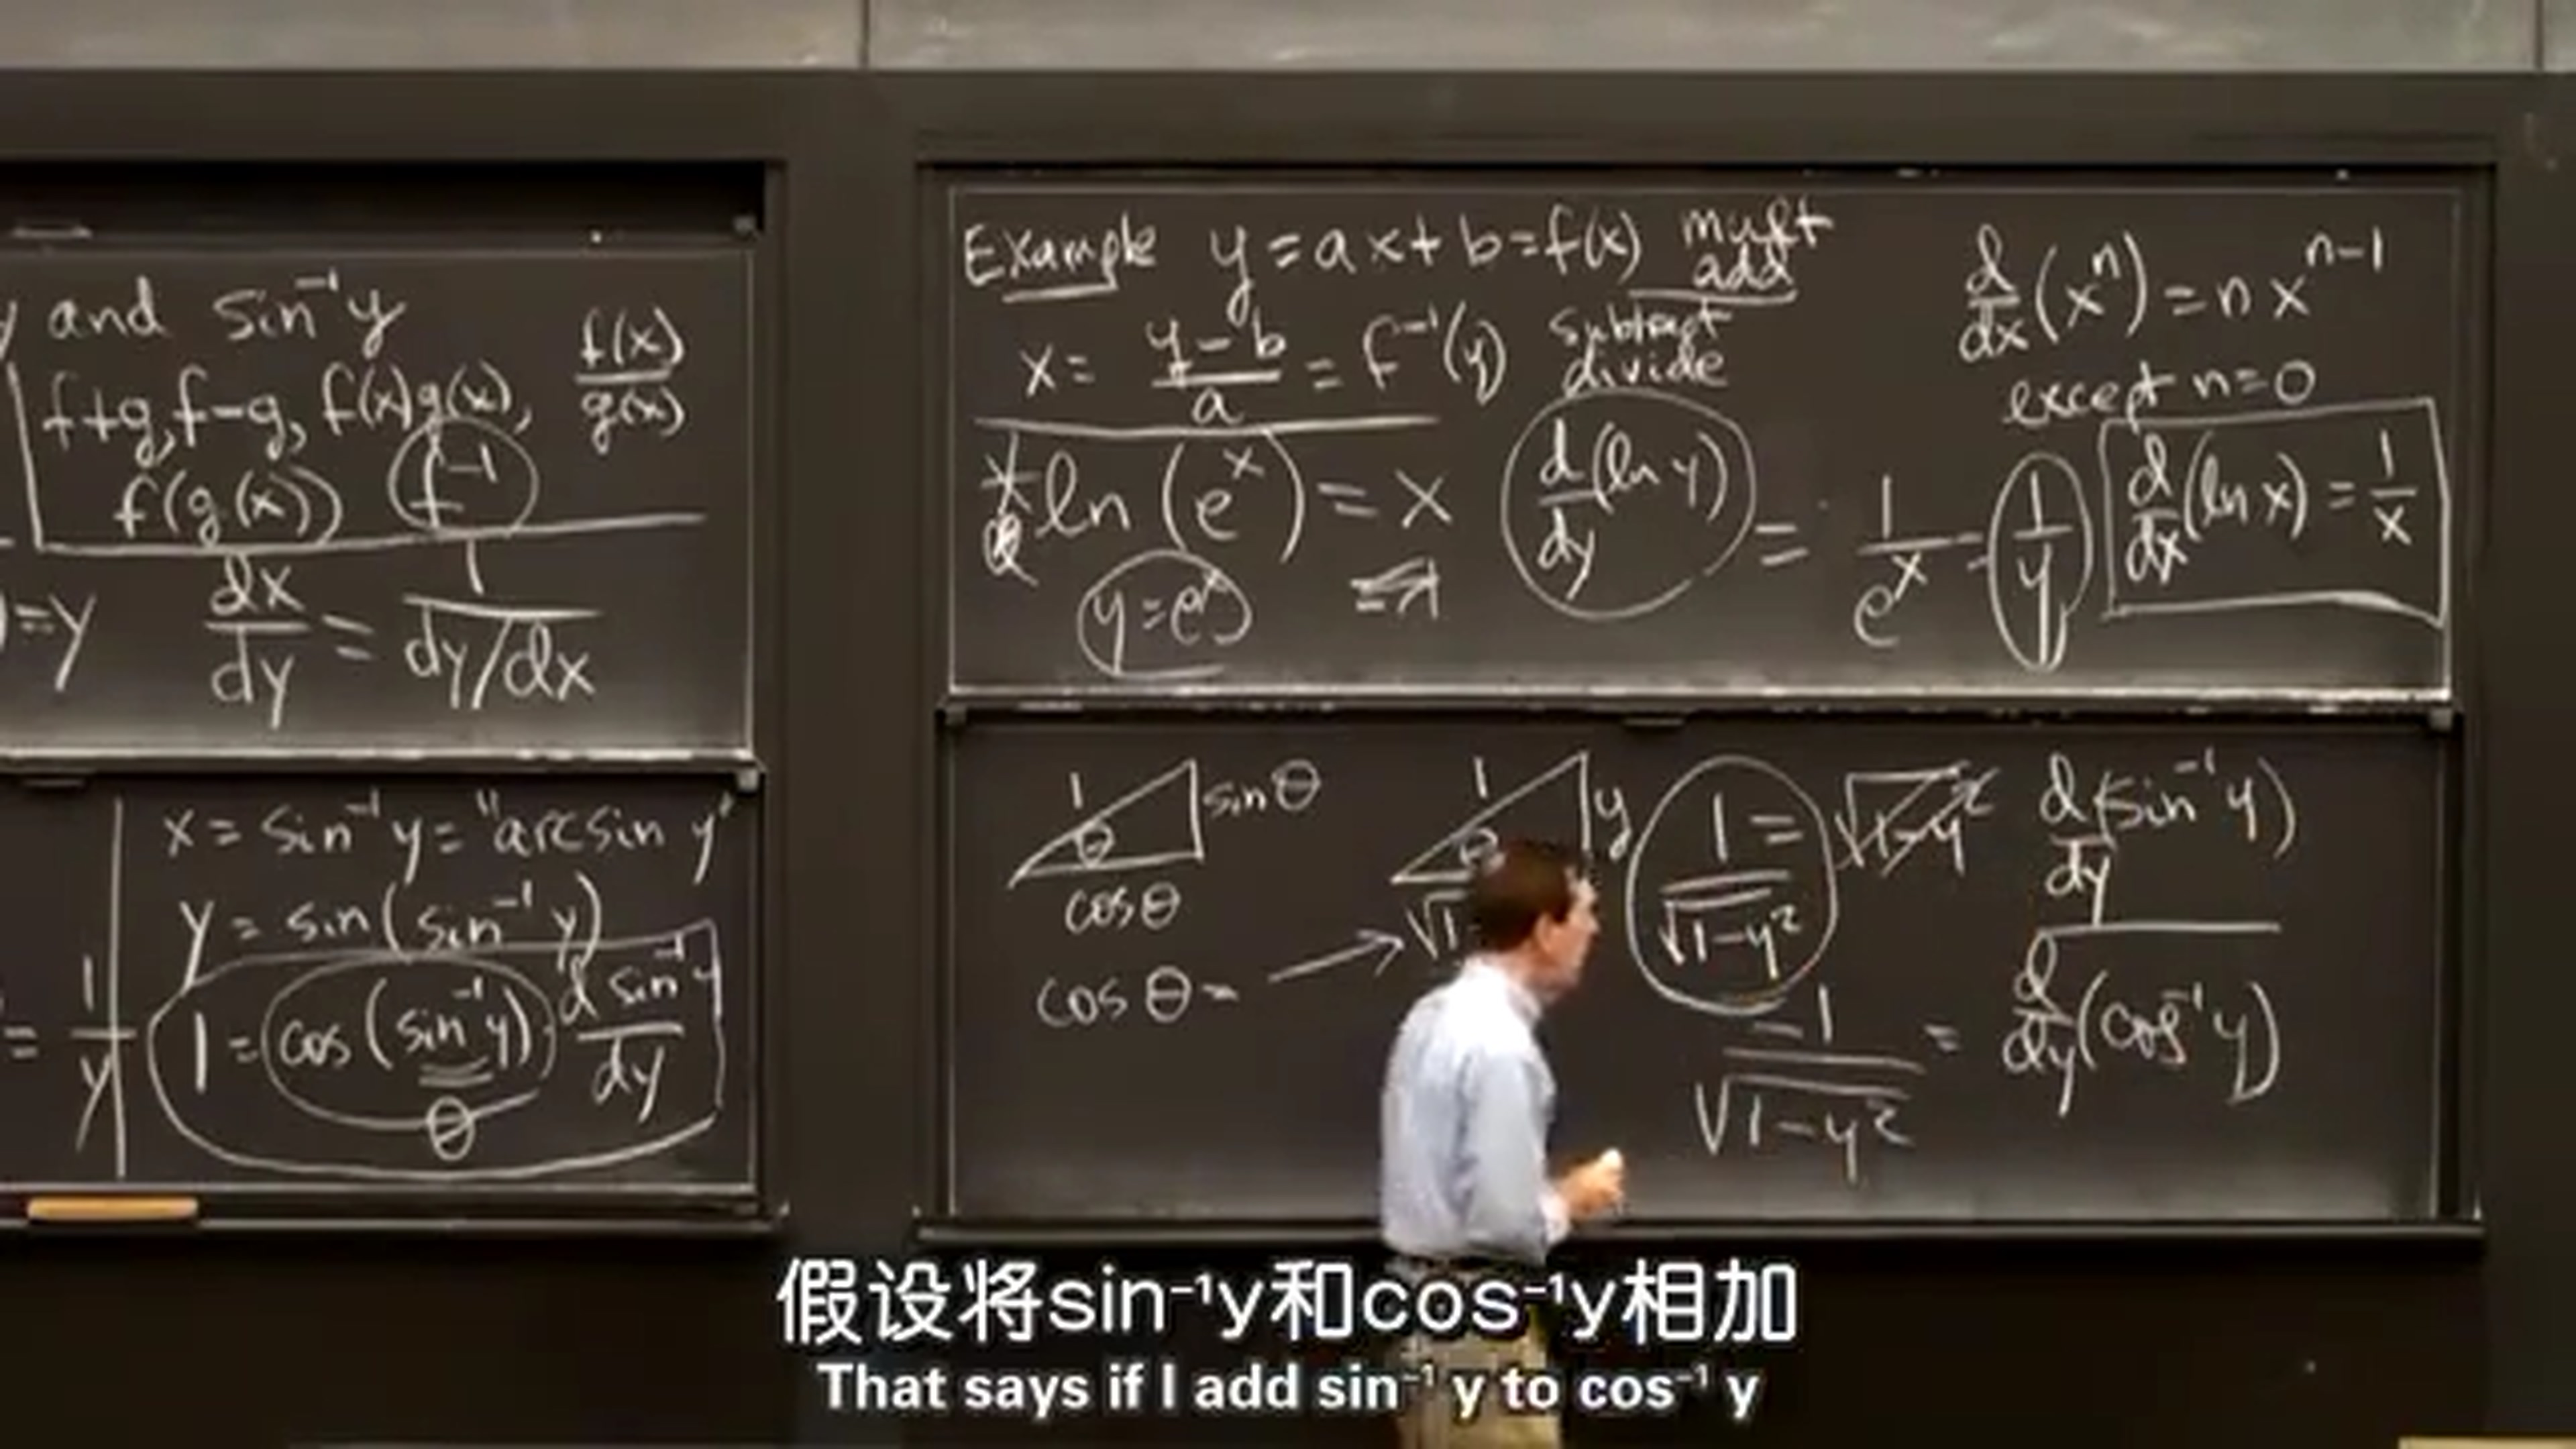 y and sin⁻¹y
f+g, f-g, f(x)g(x), f(x)/g(x)
f(g(x)) f⁻¹
)=y dx/dy = 1/(dy/dx)
x = sin⁻¹y = "arcsin y"
y = sin(sin⁻¹ y)
= 1/y
1 = cos(sin⁻¹y) · d sin⁻¹y/dy
θ
Example y = ax+b = f(x) mult
add
x = (y-b)/a = f⁻¹(y) subtract
divide
ln(eˣ) = x d/dy(ln y) = 1/eˣ = 1/y
y = eˣ
d/dx(xⁿ) = n xⁿ⁻¹
except n=0
d/dx(ln x) = 1/x
1 sin θ
θ
cos θ
1 y
θ
√1-
cos θ =
1/√(1-y²) = √(1-y²) d/dy(sin⁻¹y)
-1/√(1-y²) = d/dy(cos⁻¹y)
假设将sin⁻¹y和cos⁻¹y相加
That says if I add sin⁻¹ y to cos⁻¹ y